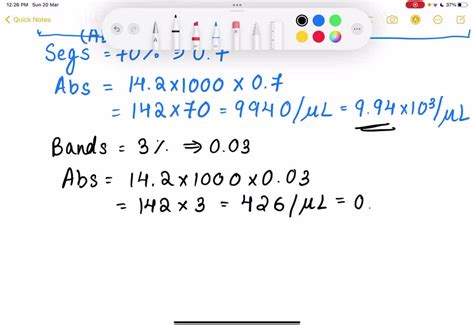 12:26 PM Sun 20 Mar
37%
Quick Notes
Segs = 70% ⇒ 0.7
Abs = 14.2×1000 × 0.7
= 142×70 = 9940/μL = 9.94×10³/μL
Bands = 3% ⇒ 0.03
Abs = 14.2×1000×0.03
= 142 × 3 = 426/μL = 0.